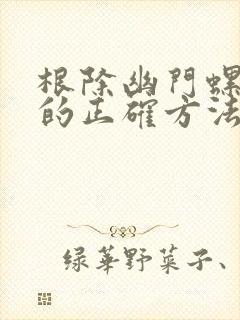 根除幽門螺
的正確方法
綠華野菜子、